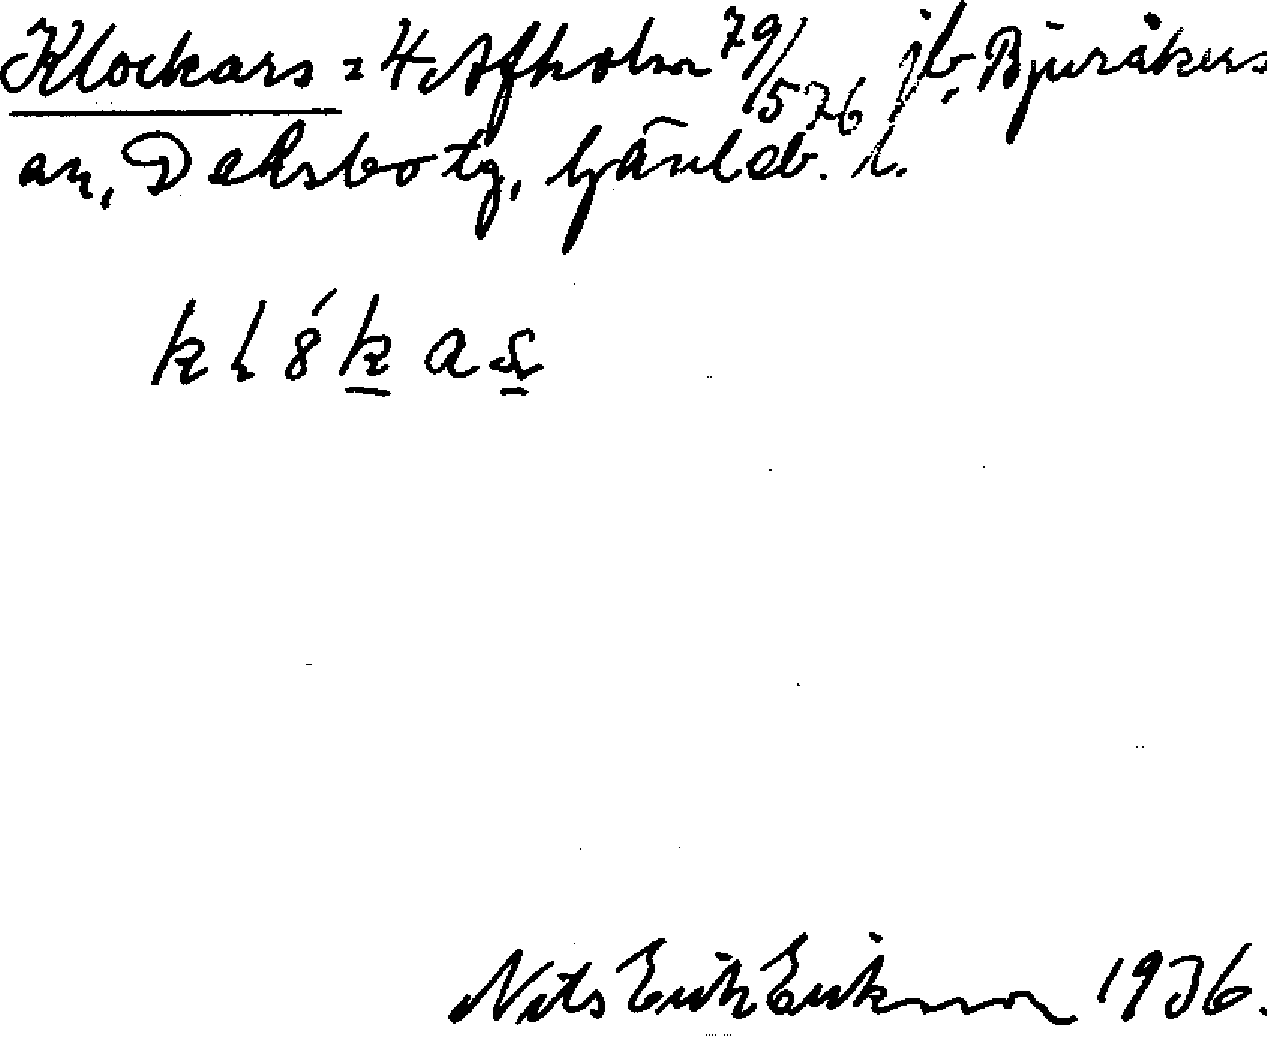 Klockars = 4 Afholm 79/576 jb, Bjuråkers
sn, Delsbo tg, Gävleb. l.
kl8́kas
Nils Erik Eriksson 1936.